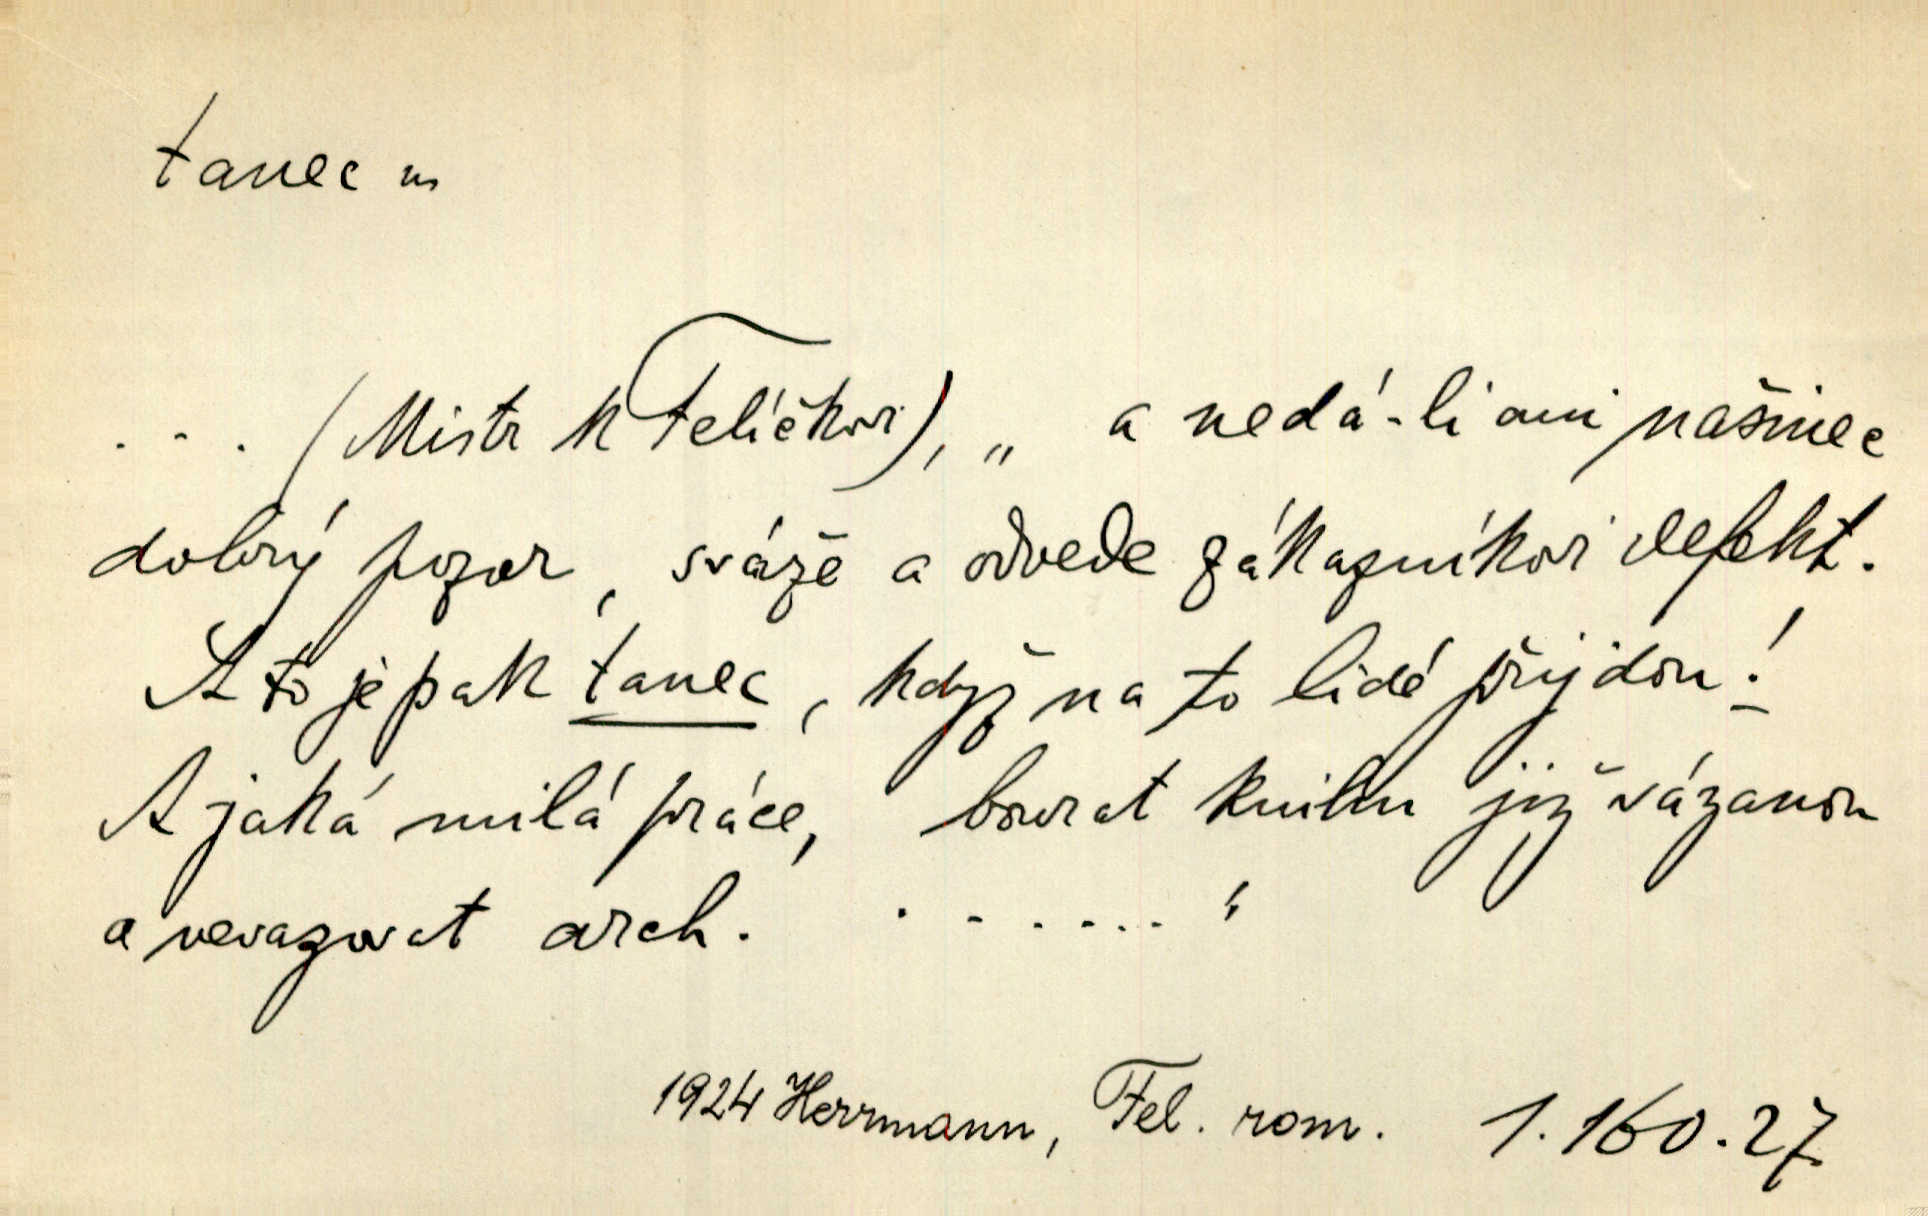 tanec m
... (Mistr k Felíčkovi), „ a nedá-li ani našinec
dobrý pozor, sváže a odvede zákazníkovi defekt.
A to je pak tanec, když na to lidé přijdou!
A jaká milá práce, bourat knihu již vázanou
a vevazovat arch. . . . . . . . "
1924 Herrmann, Fel. rom. 1.160.27